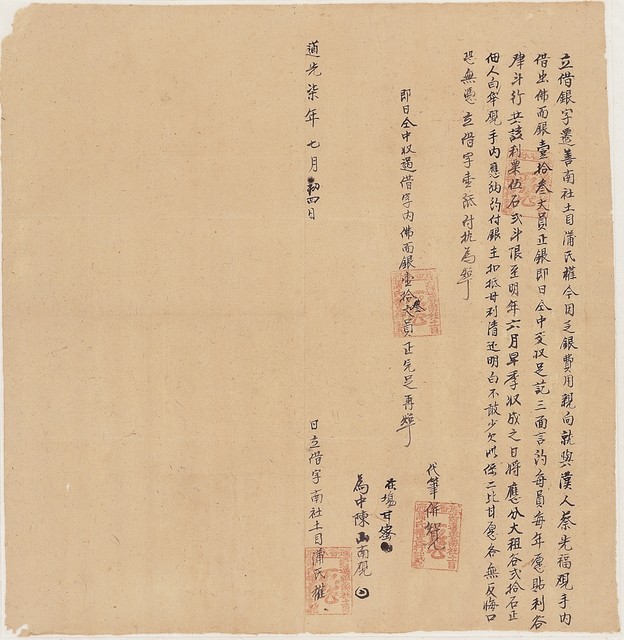 立借銀字遷善南社土目蒲氏難今因乏銀費用親向就與漢人蔡光福觀手內
借出佛面銀壹拾叁大員正銀即日仝中交收足訖三面言約每員每年愿貼利谷
肆斗行共該利粟伍石弍斗限至明年六月早季收成之日將應分大租谷弍拾石正
佃人白 觀手內應納的付銀主扣抵母利清还明白不敢少欠 二比甘愿各無反悔口
恐無憑立借字壹 付执為炤
即日仝中收過借字內佛面銀壹拾叁大員正完足再炤
代筆
在場甘
為中陳山南觀
道光柒年七月初四日
日立借字南社土目蒲氏